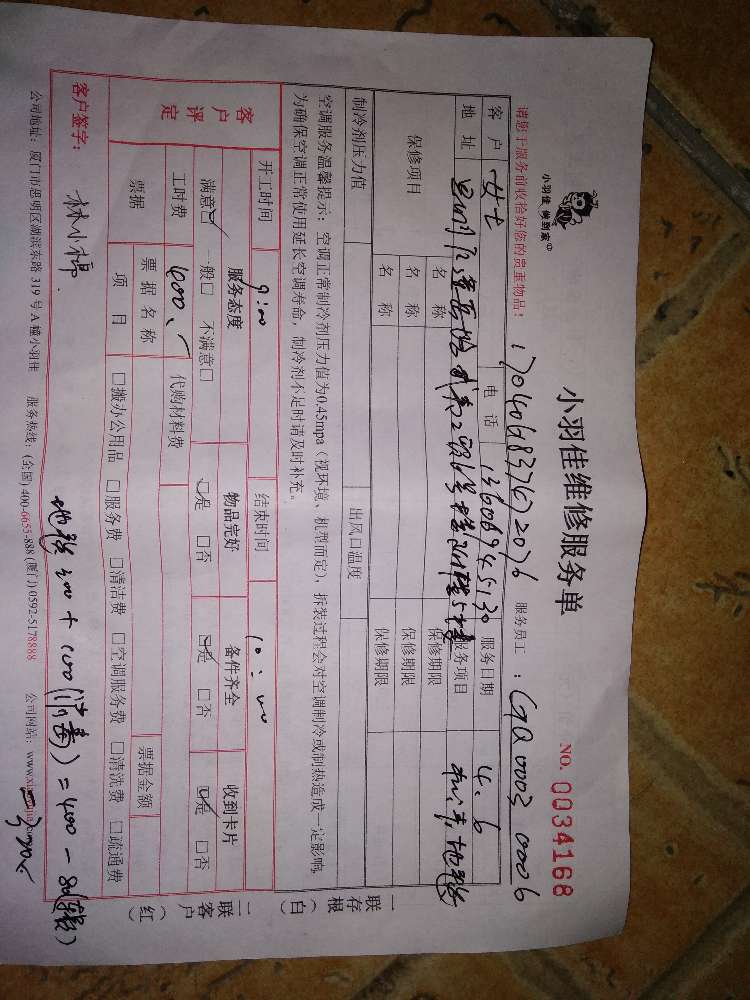 小羽佳 做到家
小羽佳维修服务单
NO. 0034168
请您于服务前收拾好您的贵重物品! 服务员工: GQ0003 0006
客户 女士 电话 13606945130 服务日期 4.6
地址 服务项目
保修项目 名称 保修期限
名称 保修期限
名称 保修期限
制冷剂压力值 出风口温度
空调服务温馨提示: 空调正常制冷剂压力值为0.45mpa (视环境、机型而定), 拆装过程会对空调制冷或制热造成一定影响,
为确保空调正常使用延长空调寿命, 制冷剂不足时请及时补充。
开工时间 9:00 结束时间 10:00
客户评定 服务态度 物品完好 备件齐全 收到卡片
满意☑ 一般□ 不满意□ ☑是 □否 ☑是 □否 ☑是 □否
工时费 400 代购材料费
票据 票据名称 票据金额
项目 □搬办公用品 □服务费 □清洁费 □空调服务费 □清洗费 □疏通费
地毯300+100(消毒)=400-80
客户签字: 320
公司地址: 厦门市思明区湖滨东路 319 号 A 幢小羽佳 服务热线: (全国) 400-6655-888 (厦门) 0592-5178888 公司网站:
一联存根(白)
二联客户(红)